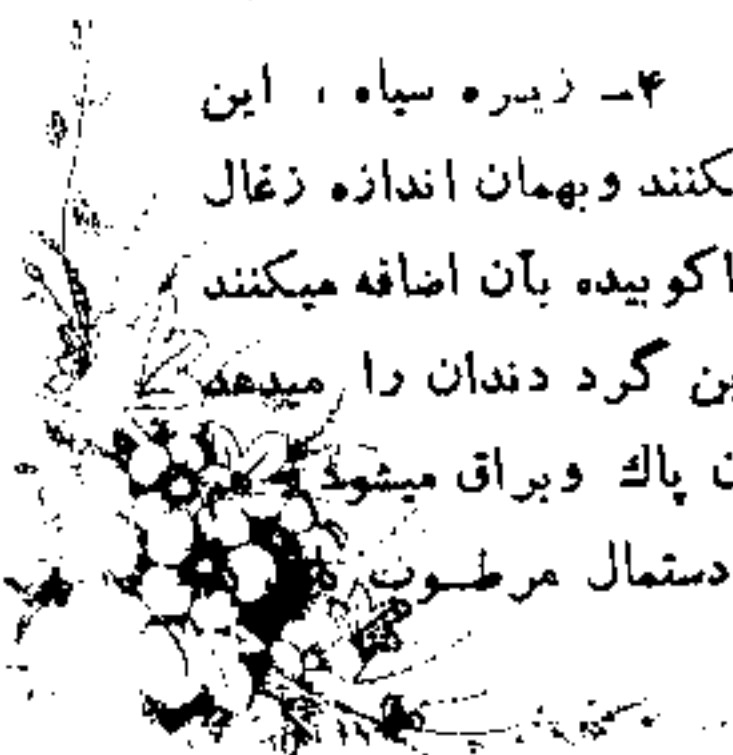 ۴ــ زیره سیاه ، این
یکنند وبهمان اندازه زغال
اکوبیده بآن اضافه میکنند
ین گرد دندان را میدهد
پاك وبراق میشود
دستمال مرطـوب